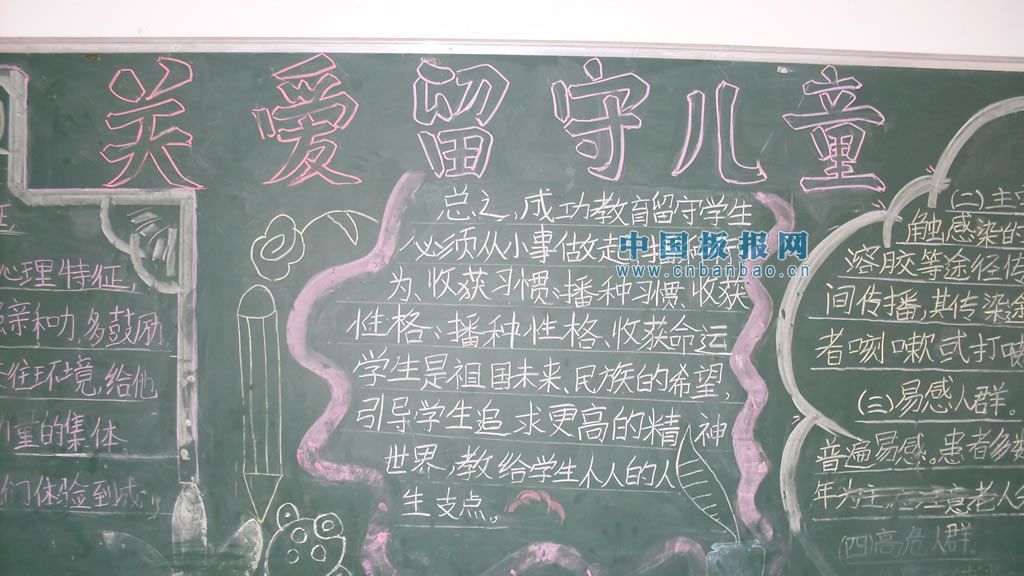 关爱留守儿童
心理特征,
亲和力,多鼓励
住环境,给他
量的集体
们体验到成
总之,成功教育留守学生
必须从小事做走
为、收获习惯;播种习惯、收获
性格;播种性格、收获命运
学生是祖国未来、民族的希望,
引导学生追求更高的精神
世界,教给学生人人的人
生支点。
中国板报网
www.cnbanbao.cn
(二)主
触感染的
溶胶等途径
间传播,其传染
者咳嗽或打喷
(三)易感人群。
普遍易感。患者多
年为主
意老人
(四)高危人群.